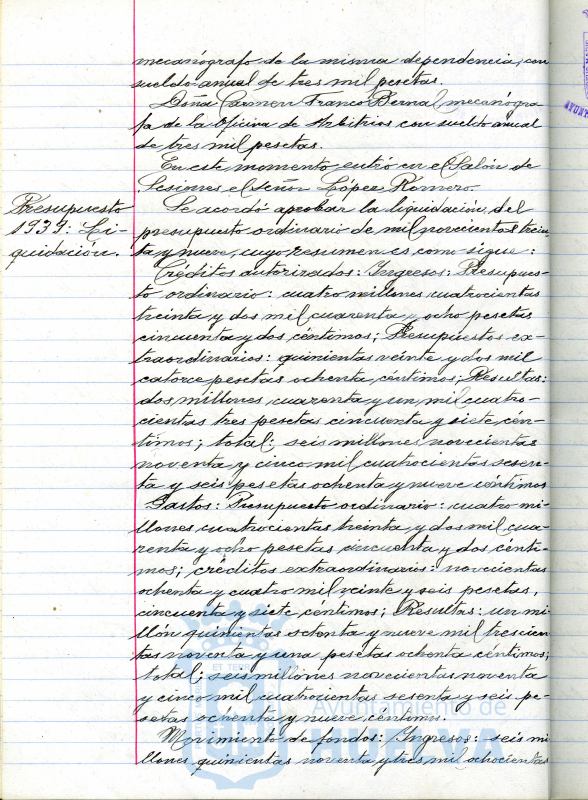 mecanógrafo de la misma dependencia, con
sueldo anual de tres mil pesetas.
Doña Carmen Franco Bernal mecanógra-
fa de la Oficina de Arbitrios con sueldo anual
de tres mil pesetas.
En este momento entró en el Salón de
Sesiones el señor López Romero.
Presupuesto
1939: Li-
quidación.
Se acordó aprobar la liquidación del
presupuesto ordinario de mil novecientos trein-
ta y nueve, cuyo resumen es como sigue:
Créditos autorizados: Ingresos: Presupues-
to ordinario: cuatro millones cuatrocientas
treinta y dos mil cuarenta y ocho pesetas
cincuenta y dos céntimos; Presupuestos ex-
traordinarios: quinientas veinte y dos mil
catorce pesetas ochenta céntimos; Resultas:
dos millones cuarenta y un mil cuatro-
cientas tres pesetas cincuenta y siete cén-
timos; total: seis millones novecientas
noventa y cinco mil cuatrocientas sesen-
ta y seis pesetas ochenta y nueve céntimos
Gastos: Presupuesto ordinario: cuatro mi-
llones cuatrocientas treinta y dos mil cua-
renta y ocho pesetas cincuenta y dos cénti-
mos; créditos extraordinarios: novecientas
ochenta y cuatro mil veinte y seis pesetas,
cincuenta y siete céntimos; Resultas: un mi-
llón quinientas setenta y nueve mil trescien-
tas noventa y una pesetas ochenta céntimos;
total; seis millones novecientas noventa
y cinco mil cuatrocientas sesenta y seis pe-
setas ochenta y nueve céntimos.
Movimiento de fondos: Ingresos: seis mi-
llones quinientas noventa y tres mil ochocientas
ET TERR
Ayuntamiento de
HUELVA